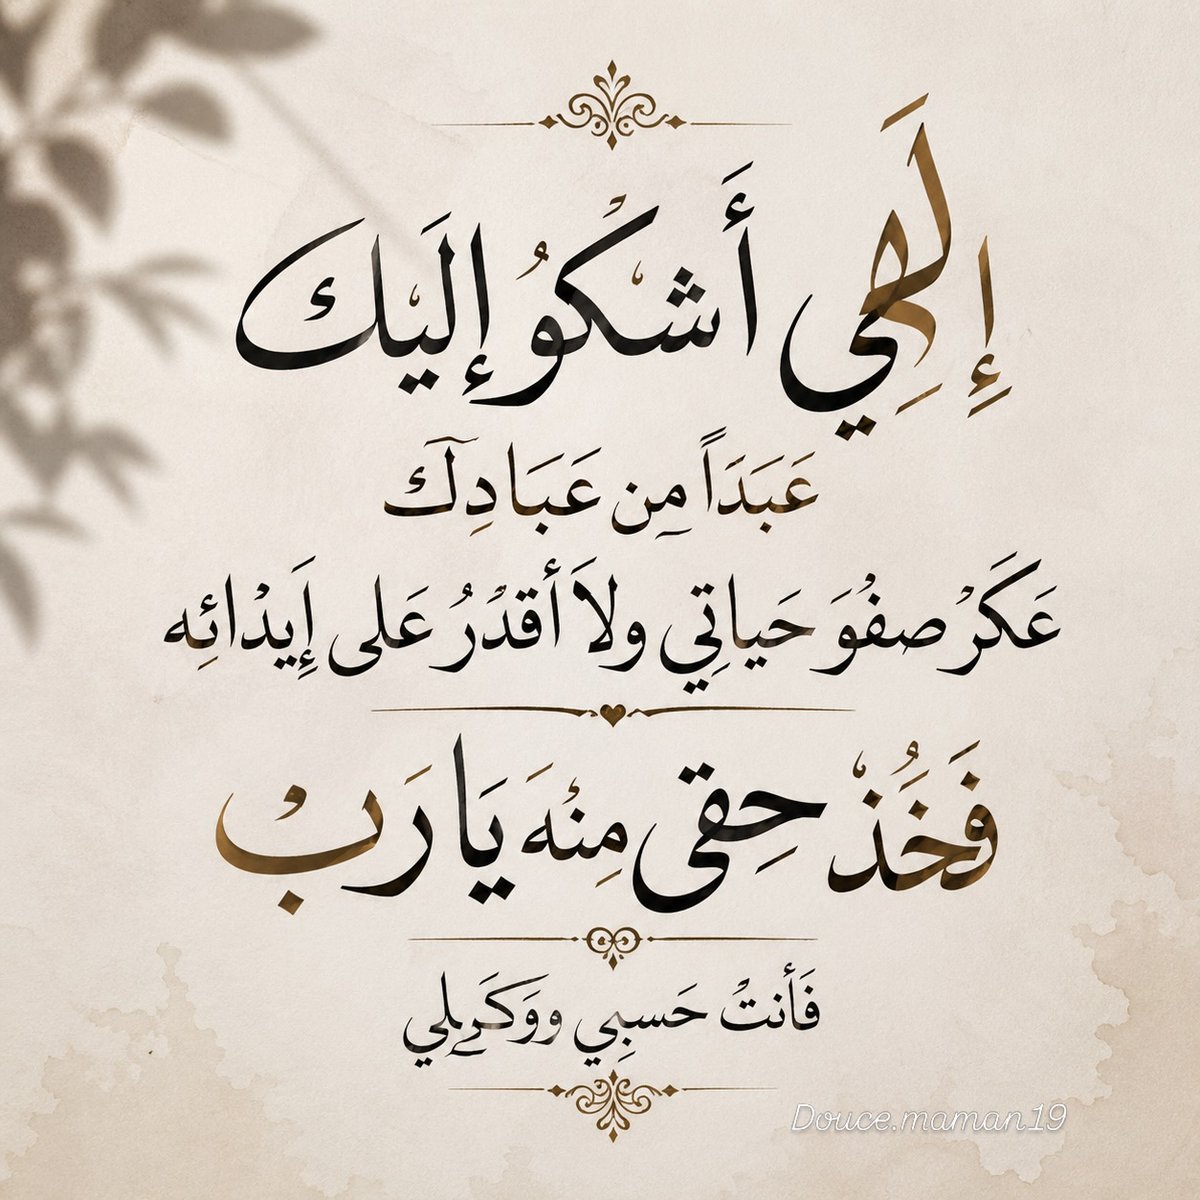 إِلَهِي أَشْكُو إِلَيْك
عَبَدَاً مِن عَبَادِكَ
عَكَرْ صفُوَ حَياتِي ولاَ أقدْرُ عَلى إِيَدْائِه
فَخَُذْ حِقى مِنْهَ يَا رَبْ
فَأَنتْ حَسبِي
Douce.maman19